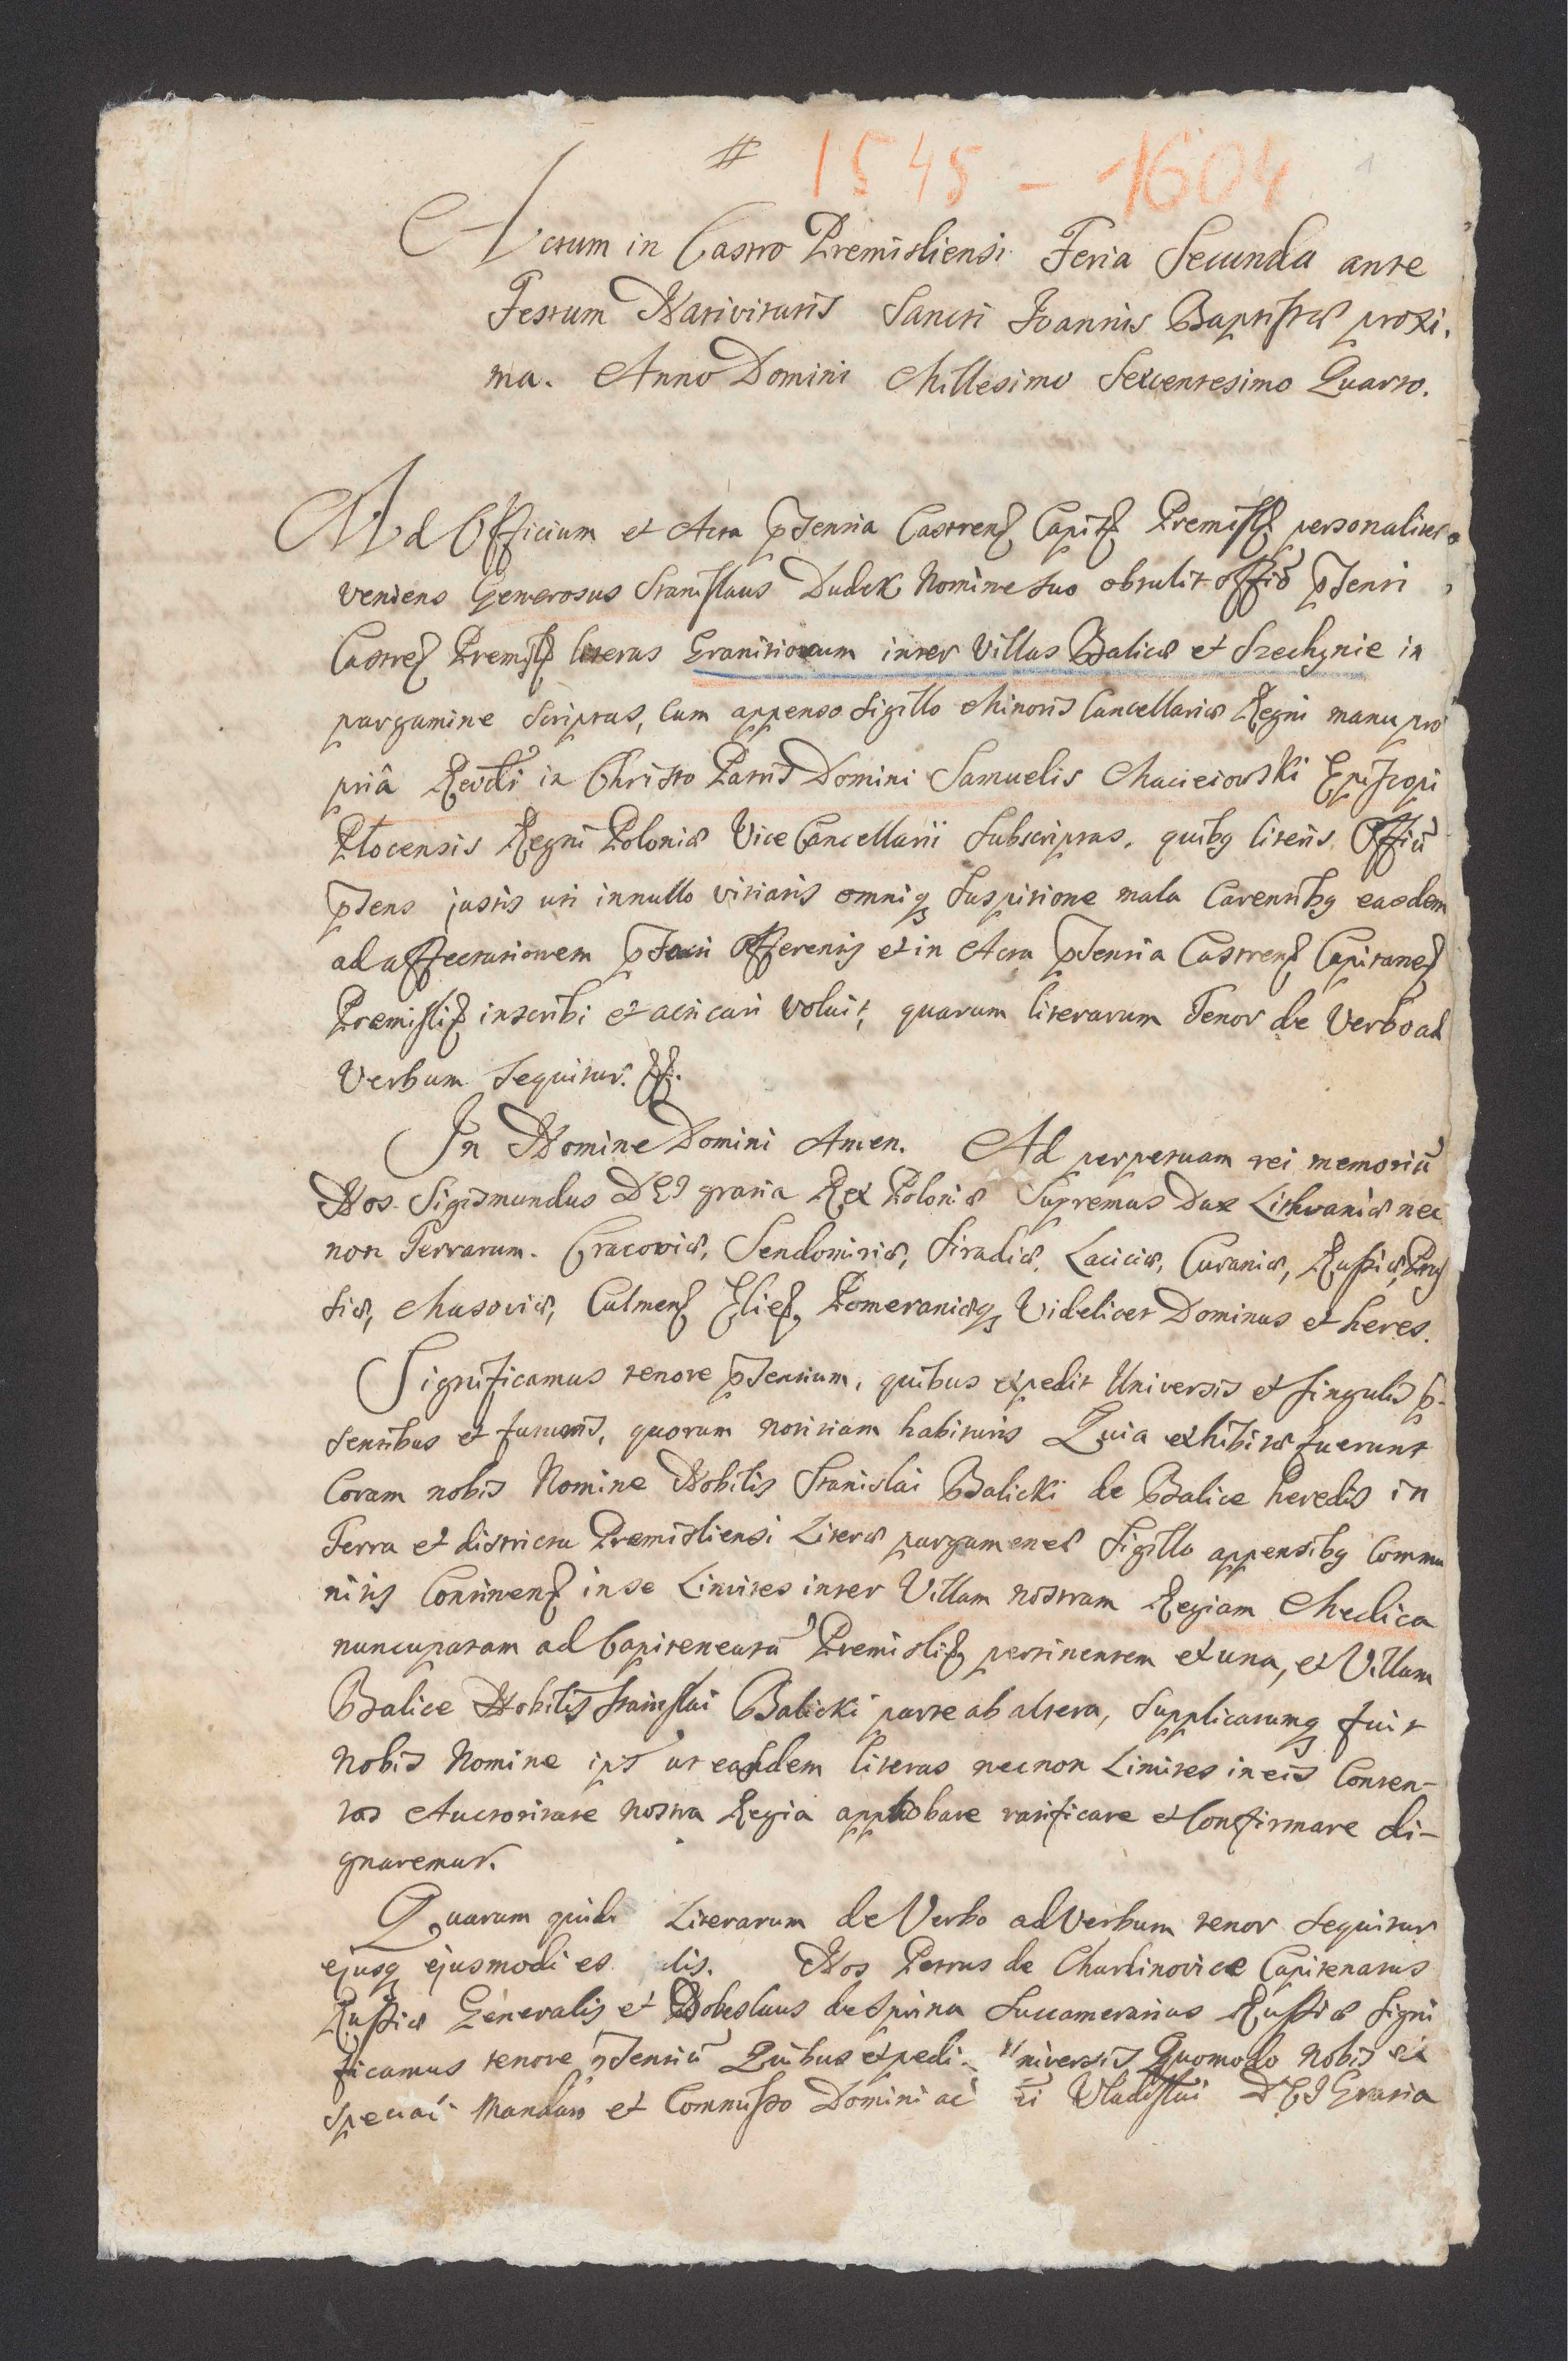 # 1545 - 1604 1
Actum in Castro Premisliensi Feria Secunda ante
Festum Nativitatis Sancti Joannis Baptistæ proxi,
ma. Anno Domini Millesimo Sexcentesimo Quarto.
Ad Officium et Acta pnsentia Castren Capit Premisl personaliter
veniens Generosus Stanislaus Dudek Nomine suo obtulit offio pnsenti
Castre Premisl literas Granitiorum inter Villas Balicæ et Szechynie in
pargamine Scriptas, Cum appenso Sigillo Minoris Cancellariæ Regni manu pro
priâ Revdi in Christo Patris Domini Samuelis Macieiowski Episcopi
Plocensis Regni Poloniæ Vice Cancellarii Subscriptas, quibq literis Offiũ
pnsens justis uti innullo vitiatis omniq Suspitione mala Carentibq easdem
ad affectationem offerentis et in Acta pnsentia Castren Capitane
Premisli inscribi et acticari voluit, quarum literarum Tenor de Verbo ad
Verbum Sequitur.
In Nomine Domini Amen. Ad perpetuam rei memoriũ
Nos Sigismundus DEI gratia Rex Poloniæ Supremus Dux Lithvaniæ nec
non Terrarum. Cracoviæ, Sendomiriæ, Siradiæ, Lacicia, Cuvaniæ, Russiæ, Prus
siæ, Masoviæ, Culmen Elie, Pomeraniæq Videlicet Dominus et heres.
Significamus tenore pnsentium, quibus expedit Universis et singulis p-
sentibus et futuris, quorum notitiam habituris Quia exhibitæ fuerunt
Coram nobis Nomine Nobilis Stanislai Balicki de Balice heredis in
Terra et districtu Premisliensi Literæ pargameneæ Sigillo appensibq Commu
nitis Continen in se Limites inter Villam nostram Regiam Medica
nuncupatam ad Capiteneatũ Premisli pertinentem ex una, et Villam
Balice Nobilis Stanislai Balicki parte ab altera, Supplicatumq fuit
Nobis Nomine ips ut easdem literas necnon Limites in eis Conten-
tos Auctoritate nostra Regia approbare ratificare et Confirmare di-
gnaremur.
Quarum quide Literarum de Verbo ad Verbum tenor Sequitur
ejusq ejusmodi es alis. Nos Petrus de Charbinovice Capitenatus
Russiæ Generalis et Dobeslaus de Sprina Succamerarius Russiæ Signi
ficamus tenore pnsentiũ Quibus expedi Universis Quomodo Nobis ex
Speciali Mandato et Commisso Domini ac Uladislai DEI Gratia